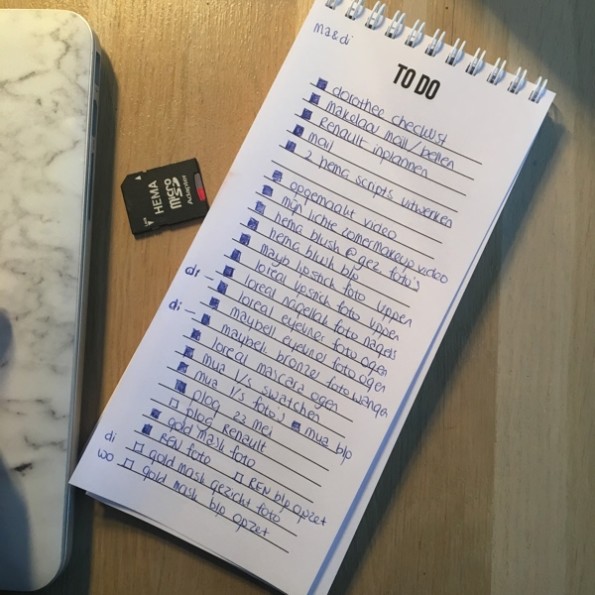 ma & di
TO DO
dorothee checklist
makelaar mail / bellen
Renault inplannen
mail
2 hema scripts uitwerken
opgemaakt video
mijn lichte zomermakeup video
hema blush @ gez. foto's
hema blush blp
mayb lipstick foto lippen
di loreal lipstick foto lippen
loreal nagellak foto nagels
di – loreal eyeliner foto ogen
maybell eyeliner foto ogen
maybell. bronzer foto wangen
loreal mascara ogen
mua l/s swatchen
mua l/s foto's mua blp
plog 22 mei
plog Renault
gold mask foto
REN foto REN blp opzet
di gold mask gezicht foto
wo gold mask blp opzet
HEMA
micro SD
Adapter